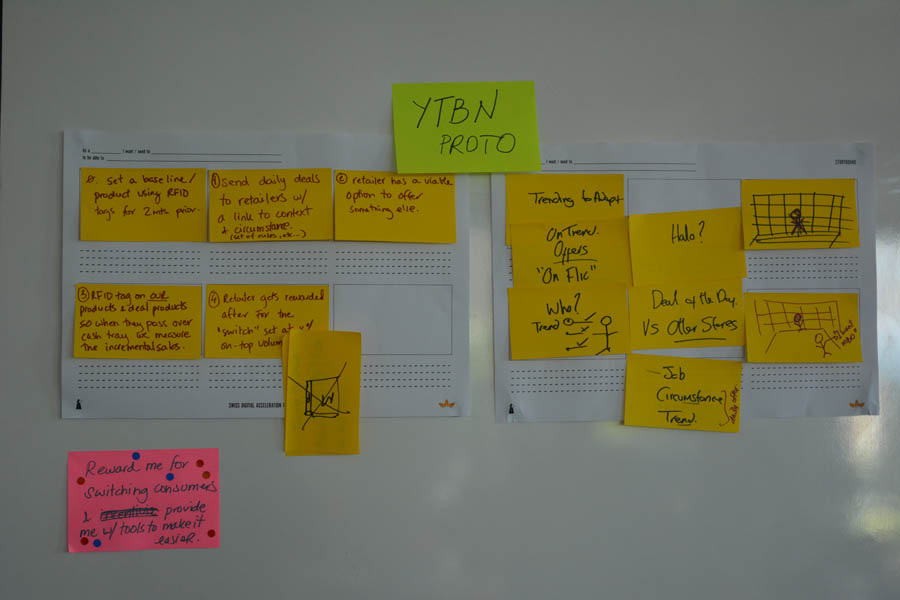 YTBN
PROTO
As a , I want / need to
to be able to
0. set a base line/
product using RFID
tags for 2 mts prior.
1 Send daily deals
to retailers w/
a link to context
& circumstance.
(set of rules, etc...)
2 retailer has a viable
option to offer
something else.
3 RFID tag on OUR
products & deal products
so when they pass over
cash tray we measure
the incremental sales.
4 Retailer gets rewarded
after for the
"switch" set at
on-top volum
SWISS DIGITAL ACCELERATION
, I want / need to
STORYBOARD
Trending to Adapt
On Trend.
Offers
"On Flic"
Who?
Trend
Halo?
Deal of the Day.
Vs Other Stores
- Job
Circumstance
Trend.
daily offer
Reward me for
switching consumers
& provide
me w/ tools to make it
easier.